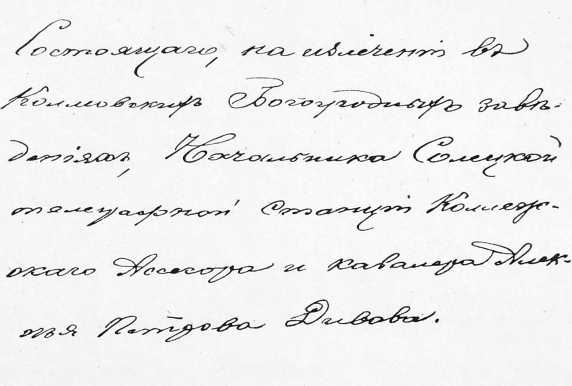 Состоящаго, на излеченіи въ
Колмовскихъ Богоугодныхъ заве-
деніяхъ, Начальника Солецкой
телеграфной Станціи Коллеж-
скаго Ассесора и кавалера Алек-
ѣя Петрова Дивова.